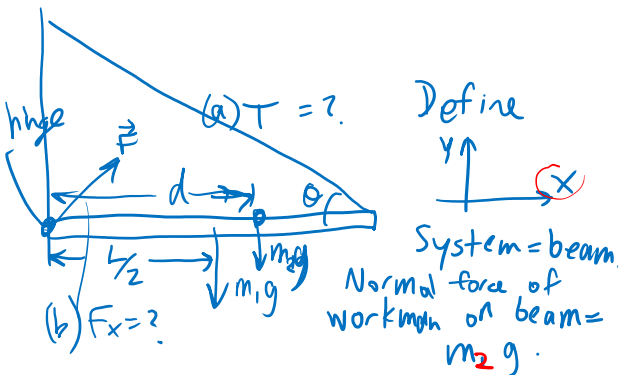 hinge
F⃗
(a) T = ?
d
θ
L/2
m₂g
m₁g
(b) Fx = ?
Define
Y
X
System = beam.
Normal force of
workman on beam =
m₂ g.